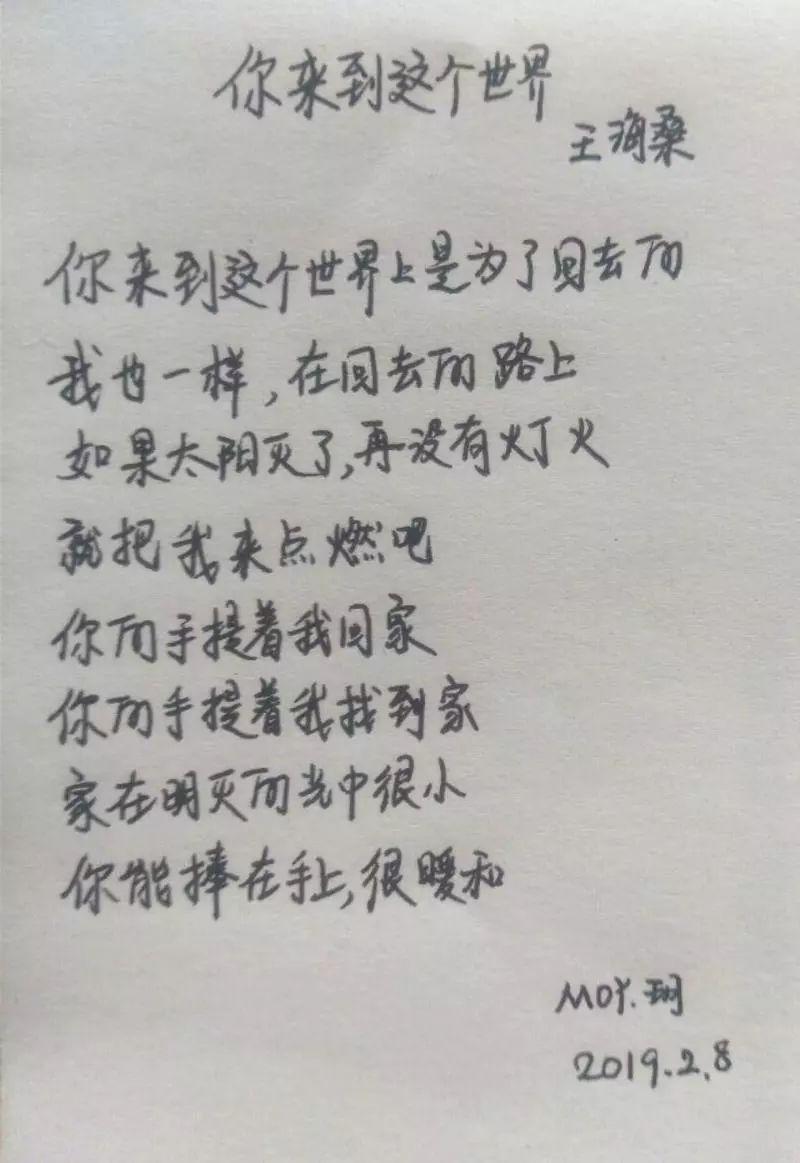 你来到这个世界
王海桑
你来到这个世界上是为了回去的
我也一样，在回去的路上
如果太阳灭了，再没有灯火
就把我来点燃吧
你的手提着我回家
你的手提着我找到家
家在明灭的光中很小
你能捧在手上，很暖和
MOY.珊
2019.2.8